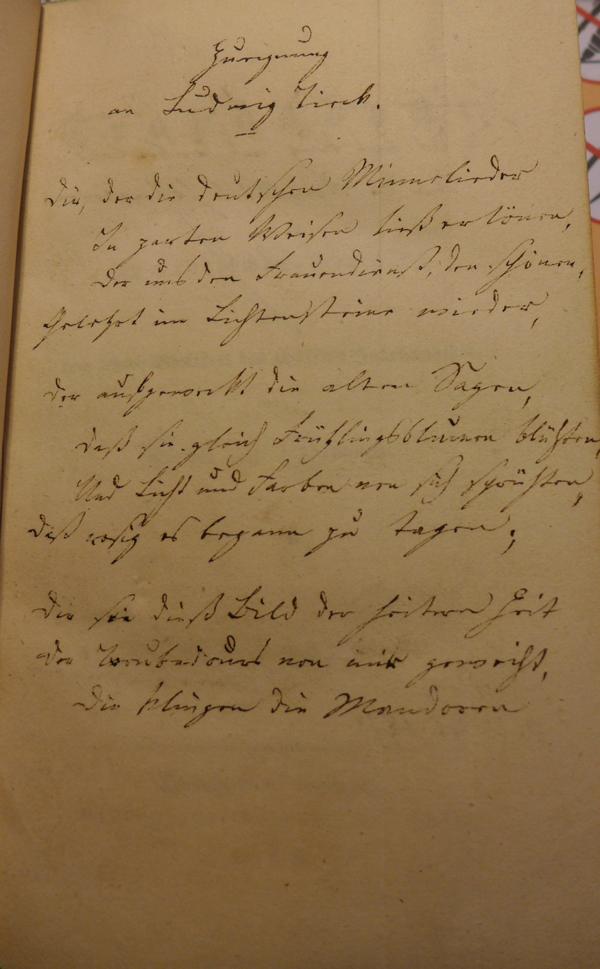 Zueignung
an Ludwig Tieck.
Dir, der die deutschen Minnelieder
In zarten Weisen ließ ertönen,
Der uns den Frauendienst, den schönen,
Gelehrt im Lichtensteine wieder,
Der aufgeweckt die alten Sagen,
Daß sie gleich Frühlingsblumen blühten,
Und Licht und Farben von sich sprühten,
Daß rosig es begann zu tagen;
Dir sei dieß Bild der heitern Zeit
Der Troubadours von mir geweiht,
Dir klingen die Mandoren